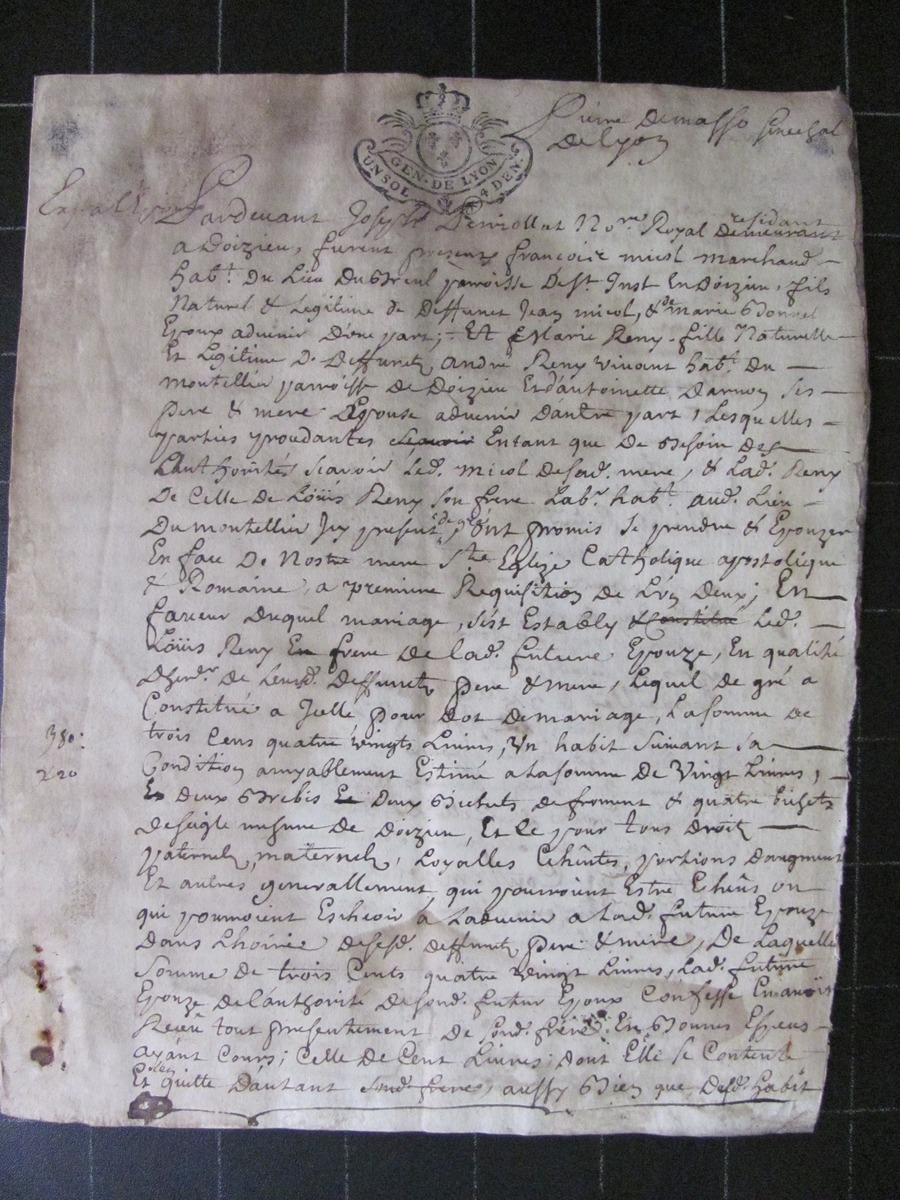 Pierre Demasso senechal
de Lyon
GEN. DE LYON
UN SOL 4 DEN.
Pardevant Joseph No.re Royal residant demeurant
a Doizieu, furent presentz francois micol marchand
hab.t Du Lieu Du Breul parroisse De S.t Just En Doizieu, fils
Naturel & Legitime de Deffunct Jean micol, & de marie Bonnel
Epoux advenir D'une part; Et Marie Reny fille Naturelle
Et Legitime D. Deffunctz andré Reny vivant hab.t du
montellier parroisse de Doizieu Et d'antoinette Darnon ses
pere & mere Lepouse advenir d'autre part, Lesquelles
parties procedantes Scavoir Entant que De Besoin des
L'authorités Scavoir Led. micol de sad. mere, & Lad. Reny
De Celle de Löüis Reny son frere Lab.r hab.t aud. Lieu
Du montellier Icy present de gré, ont promis Se prendre & Epouzer
En face De Nostre mere S.te Eglize Catholique apostolique
& Romaine, a premiere Requisition de L'un Deux; En
faveur Duquel mariage, s'est Estably & Constitué Led.
Löüis Reny En frere de lad. future Epouze, En qualité
D'her.er de Leursd. Deffunctz pere & mere, Lequel de gré a
Constitué a Icelle pour dot de mariage, La somme de
380: trois Cens quatre vingts Livres, Un habit Suivant sa
220 Condition amyablement Estimé a la somme De Vingt Livres,
Et deux Brebis Et Deux Bichets de froment & quatre bichets
de seigle mesure de Doizieu, Et ce pour tous Droitz
paternelz, maternelz, Loyalles Echûtes, portions daugment
Et autres generallement qui pourroient Estre Echeûs ou
qui pourroient Escheoir à L'advenir a Lad. future Epouze
Dans L'hoirie desesd. deffunctz pere & mere, De Laquelle
Somme de trois Cents quatre vingt Livres, Lad. future
Epouze de l'authorité De sond. futur Epoux Confesse En avoir
Receu tout presentement de sond. frere En Bonnes Especes
ayant Cours; Celle de Cent Livres; dont Elle Se Contente
Et quitte D'autant sond. frere, aussy Bien que Desd. habit